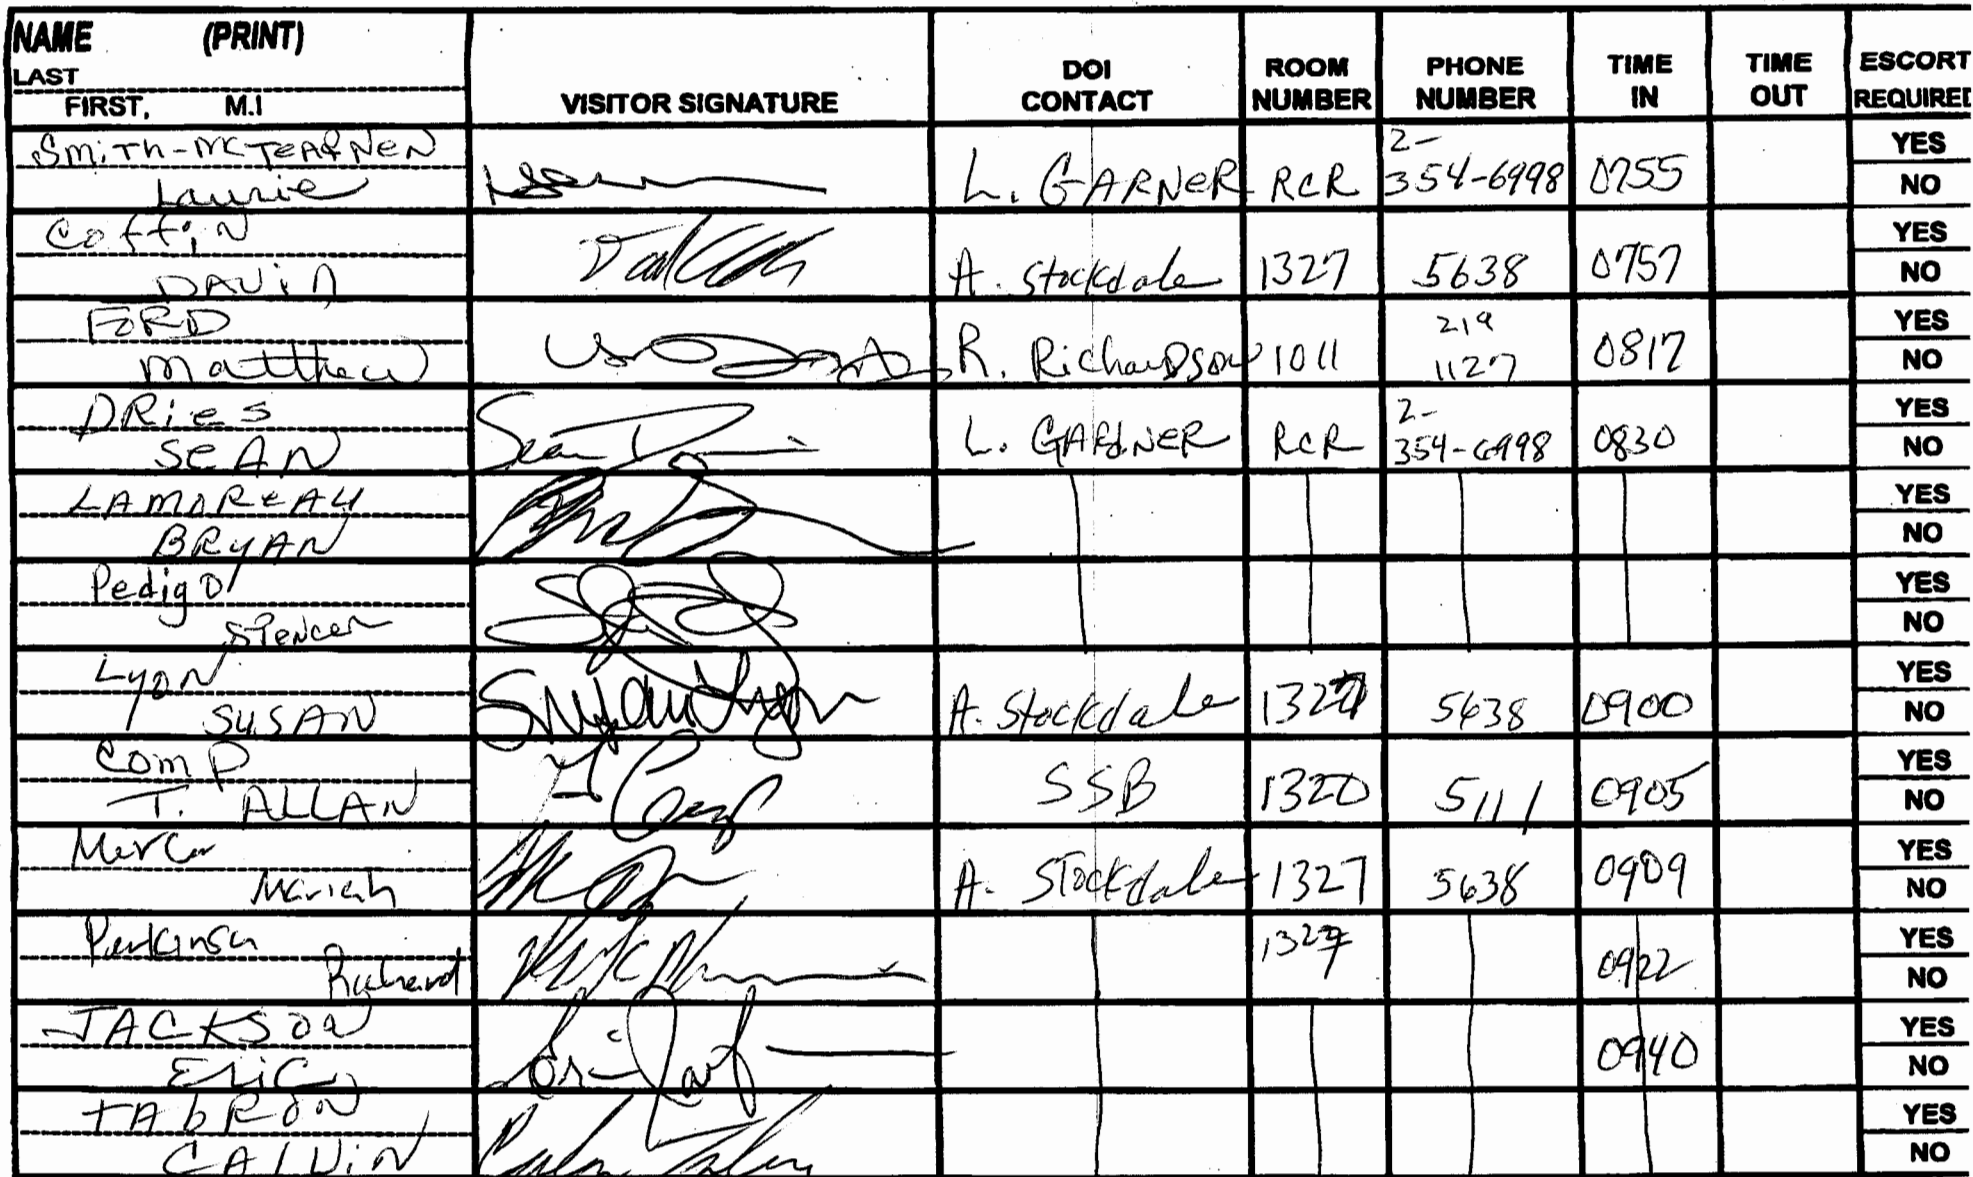 NAME (PRINT)
LAST
FIRST, M.I
VISITOR SIGNATURE
DOI CONTACT
ROOM NUMBER
PHONE NUMBER
TIME IN
TIME OUT
ESCORT REQUIRED
Smith-McTearNeN
Laurie
L. GARNER RCR 2-354-6998 0755
YES
NO
Coffin
DAViD
A. Stockdale 1327 5638 0757
YES
NO
FORD
Matthew
R. Richardson 1011 219 1127 0817
YES
NO
DRies
SEAN
Sean
L. GARDNER RCR 2-354-6998 0830
YES
NO
LAMOREAU
BRYAN
YES
NO
Pedigo
Spencer
YES
NO
Lyon
SUSAN
Susan Lyon
A. Stockdale 1327 5638 0900
YES
NO
Comp
T. ALLAN
T Comp
SSB 1320 5111 0905
YES
NO
Mercer
Mariah
A. Stockdale 1327 5638 0909
YES
NO
Perkinson
Richard
1327 0922
YES
NO
JACKSON
Eric
0940
YES
NO
TAbRON
CALViN
YES
NO